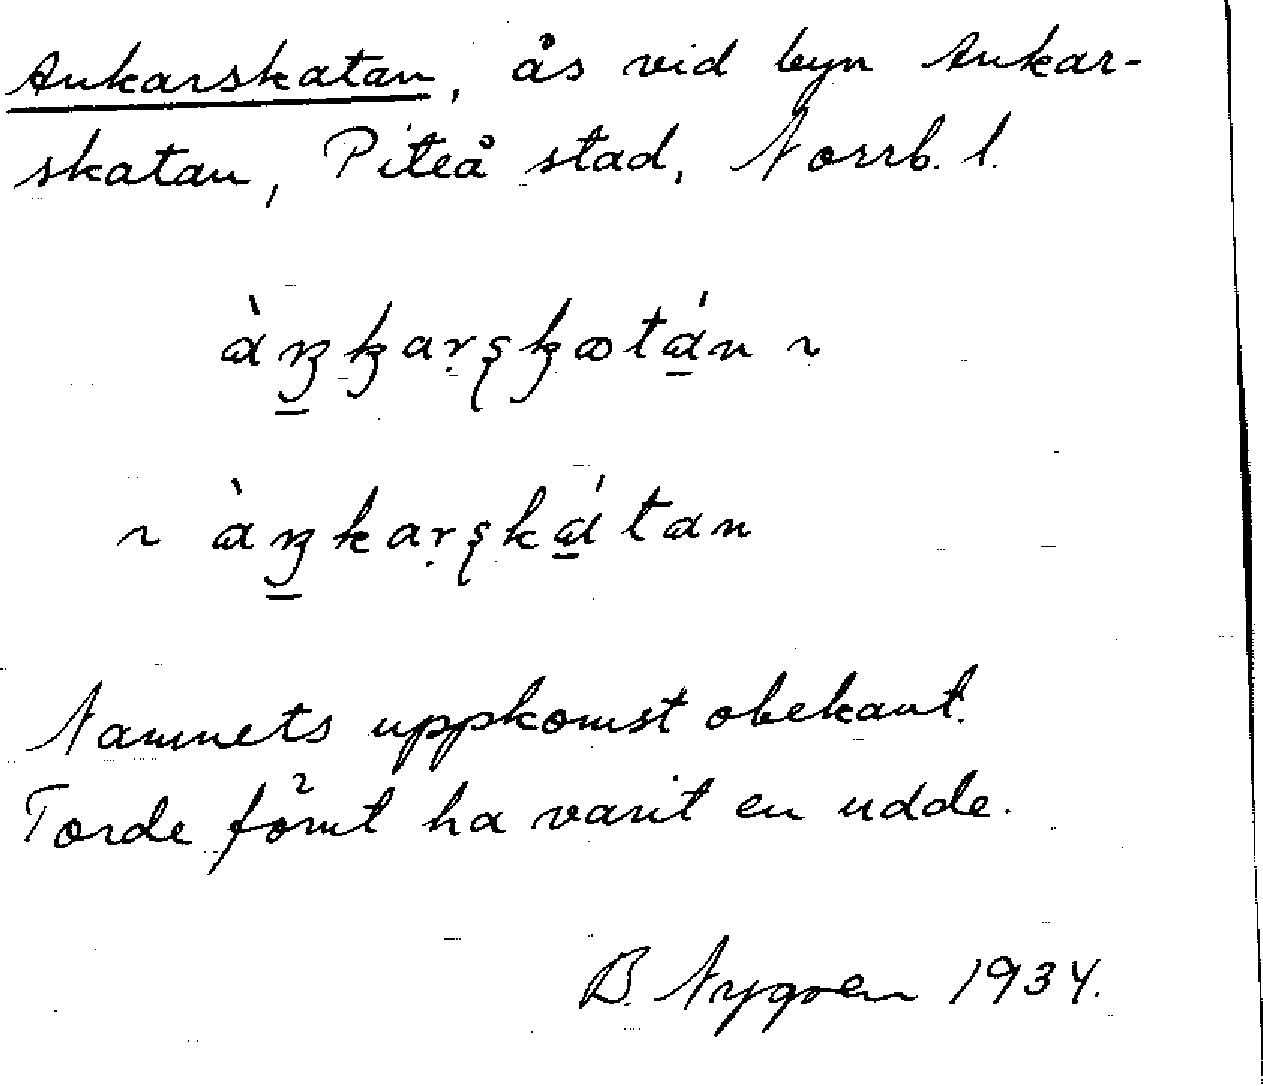 Ankarskatan, ås vid byn Ankar-
skatan, Piteå stad, Norrb. l.
Namnets uppkomst obekant.
Torde förut ha varit en udde.
B. Nygren 1934.